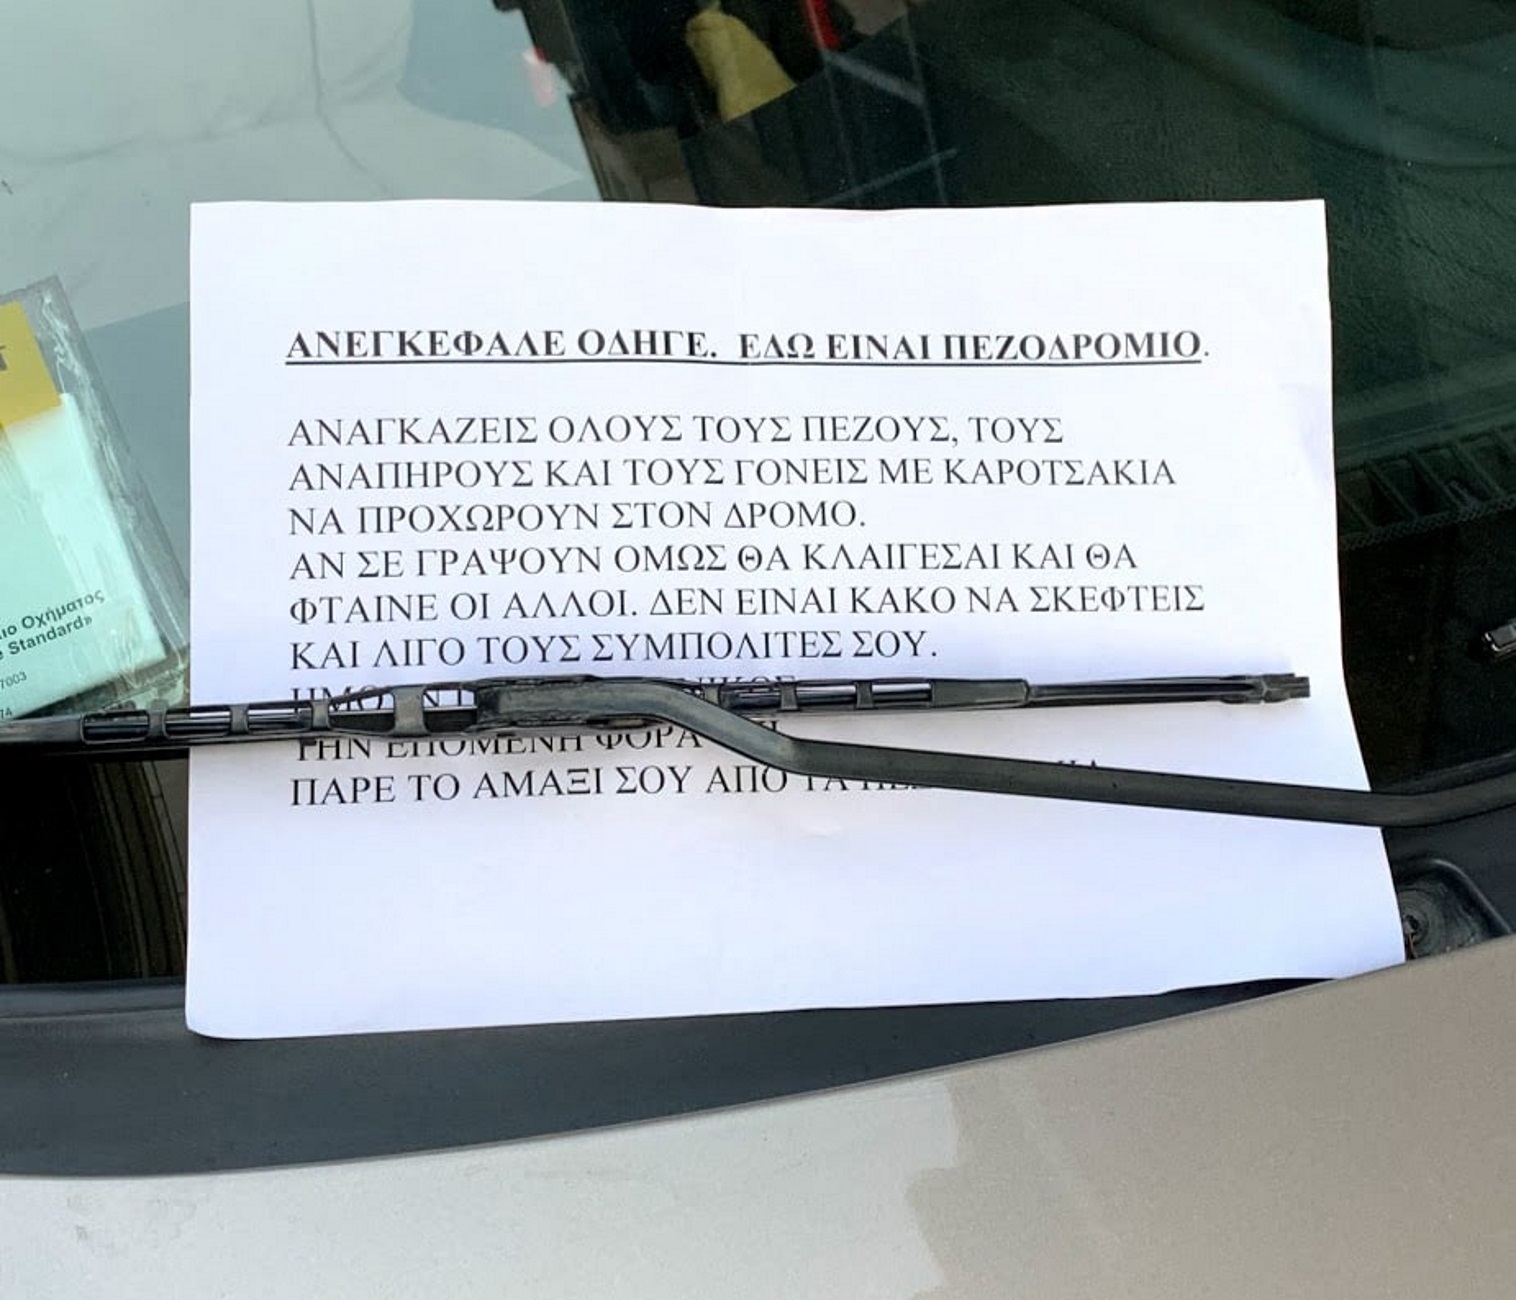 ΑΝΕΓΚΕΦΑΛΕ ΟΔΗΓΕ. ΕΔΩ ΕΙΝΑΙ ΠΕΖΟΔΡΟΜΙΟ.
ΑΝΑΓΚΑΖΕΙΣ ΟΛΟΥΣ ΤΟΥΣ ΠΕΖΟΥΣ, ΤΟΥΣ
ΑΝΑΠΗΡΟΥΣ ΚΑΙ ΤΟΥΣ ΓΟΝΕΙΣ ΜΕ ΚΑΡΟΤΣΑΚΙΑ
ΝΑ ΠΡΟΧΩΡΟΥΝ ΣΤΟΝ ΔΡΟΜΟ.
ΑΝ ΣΕ ΓΡΑΨΟΥΝ ΟΜΩΣ ΘΑ ΚΛΑΙΓΕΣΑΙ ΚΑΙ ΘΑ
ΦΤΑΙΝΕ ΟΙ ΑΛΛΟΙ. ΔΕΝ ΕΙΝΑΙ ΚΑΚΟ ΝΑ ΣΚΕΦΤΕΙΣ
ΚΑΙ ΛΙΓΟ ΤΟΥΣ ΣΥΜΠΟΛΙΤΕΣ ΣΟΥ.
ΤΗΝ ΕΠΟΜΕΝΗ ΦΟΡΑ
ΠΑΡΕ ΤΟ ΑΜΑΞΙ ΣΟΥ ΑΠΟ ΤΑ
Οχήματος
Standard»
7003
74